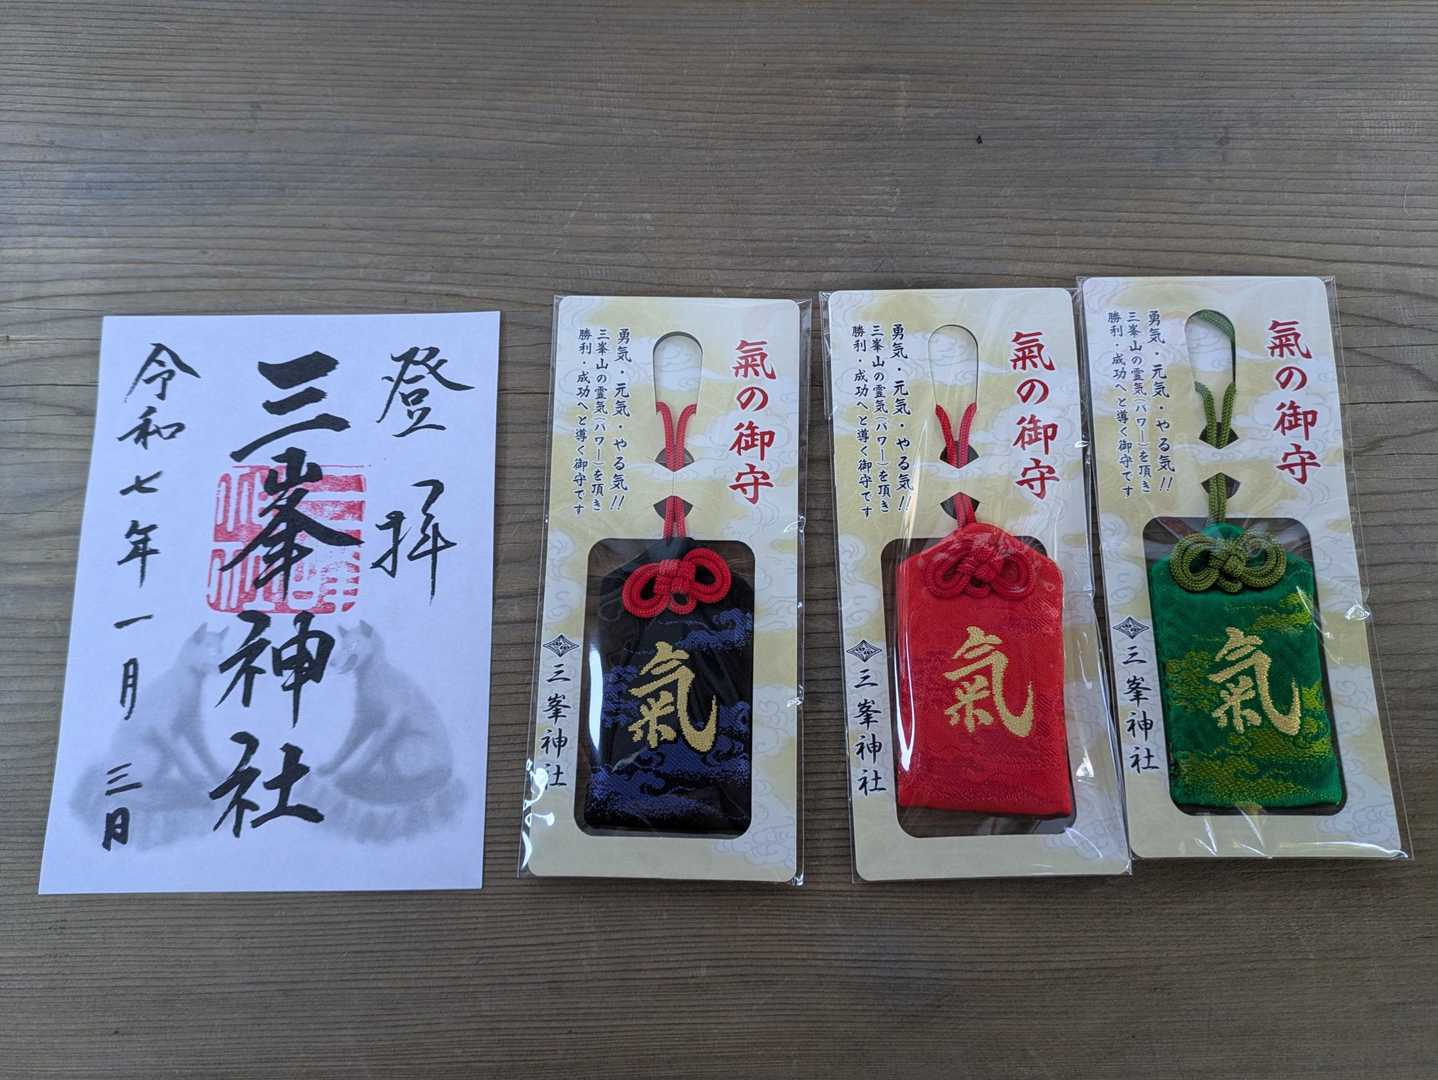 登拝
三峯神社
令和七年一月三日
氣の御守
勇気・元気・やる気!!
三峯山の霊気(パワー)を頂き
勝利・成功へと導く御守です
氣
三峯神社
氣の御守
勇気・元気・やる気!!
三峯山の霊気(パワー)を頂き
勝利・成功へと導く御守です
氣
三峯神社
氣の御守
勇気・元気・やる気!!
三峯山の霊気(パワー)を頂き
勝利・成功へと導く御守です
氣
三峯神社